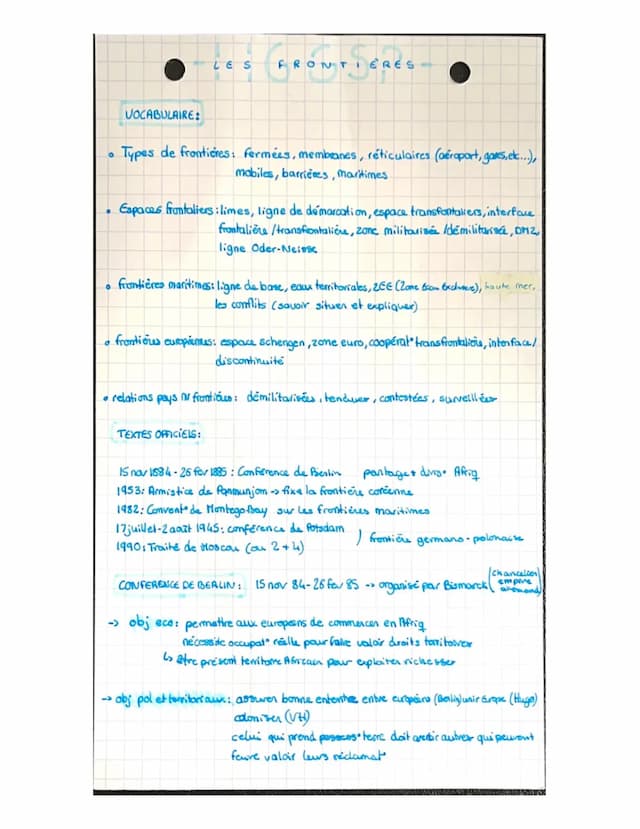 HGGSP
- LES FRONTIÈRES -
VOCABULAIRE:
• Types de frontières: fermées, membranes, réticulaires (aéroport, gares, etc...),
mobiles, barrières, maritimes
• Espaces frontaliers: limes, ligne de démarcation, espace transfrontaliers, interface
frontalière /transfrontalière, zone militarisée /démilitarisée, DMZ,
ligne Oder-Neisse
• frontières maritimes: ligne de base, eaux territoriales, ZEE (Zone Econ Exclusive), haute mer,
les conflits (savoir situer et expliquer)
• frontières européennes: espace schengen, zone euro, coopérat° transfrontalière, interface/
discontinuité
• relations pays frontières: démilitarisées, tendues, contestées, surveillées
TEXTES OFFICIELS:
15 nov 1884 - 26 fev 1885: Conférence de Berlin partage + Afriq
1953: Armistice de Panmunjom -> fixe la frontière coréenne
1982: Convent° de Montego Bay sur les frontières maritimes
17 juillet - 2 août 1945: conférence de Potsdam
1990: Traité de Moscou (ou 2+4)
) frontière germano-polonaise
CONFERENCE DE BERLIN: 15 nov 84 - 26 fev 85 -> organisé par Bismarck (chancelier
empire
allemand)
-> obj eco: permettre aux européens de commercer en Afriq
nécessite occupat° réelle pour faire valoir droits territoriaux
↳ être présent territoire Africain pour exploiter richesses
-> obj pol et territoriaux: assurer bonne entente entre européens unir Europe (Hugo)
coloniser (VH)
celui qui prend possess° terre doit avertir autres qui peuvent
faire valoir leurs réclamat°